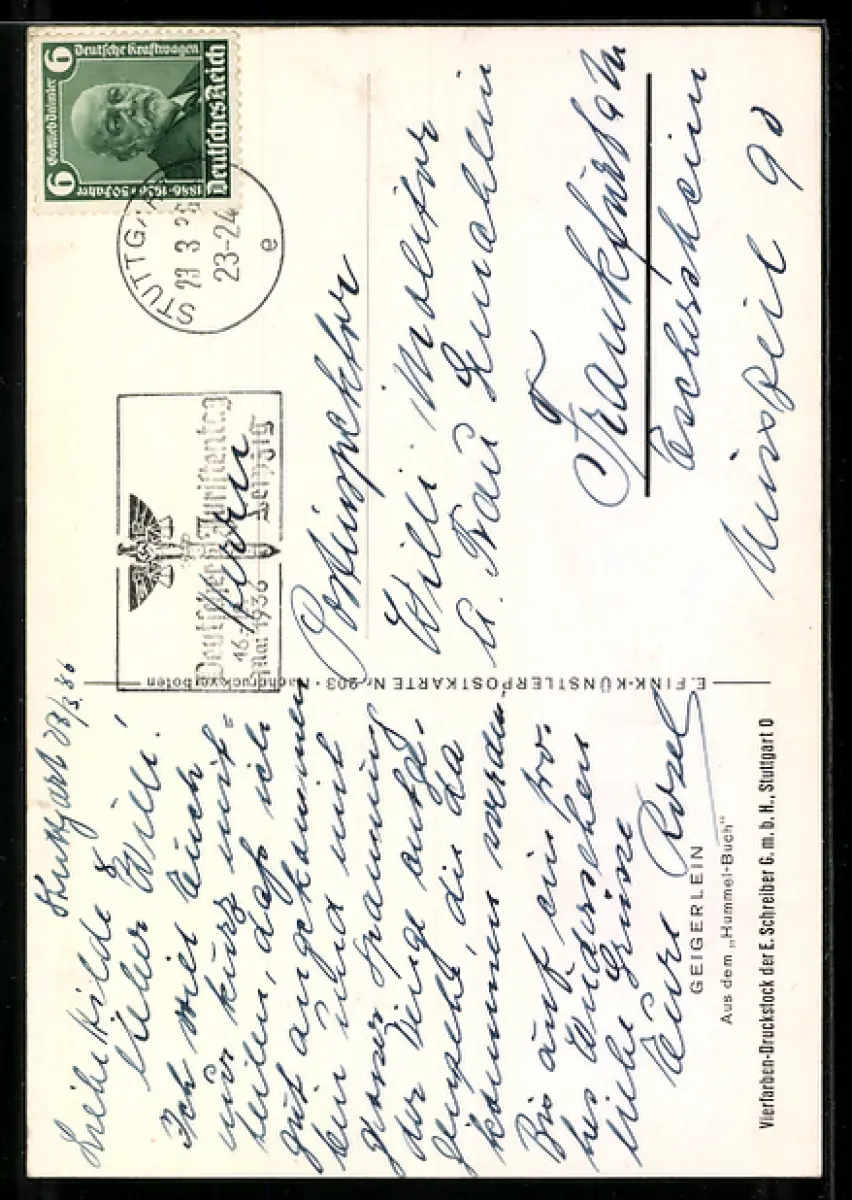 Stuttgart 23/3.36
Liebe Hilde &
lieber Willi!
Ich will Euch
nur kurz mit=
teilen, daß ich
gut angekommen
bin und mit
grosser Spannung
der Dinge entge-
gensehe, die da
kommen werden.
Bis auf ein fro-
hes Wiedersehen
liebe Grüsse
Eure Rosel
GEIGERLEIN
Aus dem „Hummel-Buch"
Vierfarben-Druckstock der E. Schreiber G. m. b. H., Stuttgart O
E. FINK-KÜNSTLERPOSTKARTE Nr. 203 · Nachdruck verboten
Gottlieb Daimler
6 Deutsche Kraftwagen
6 1886·1936·50 Jahre
Deutsches Reich
STUTTGAR
23 3
23-24
e
Deutscher Juristentag
16.
Mai 1936 Leipzig
Herrn
Postinspektor
Willi Moleitor
u. Frau Gemahlin
Frankfurt a/M
Eschersheim
90